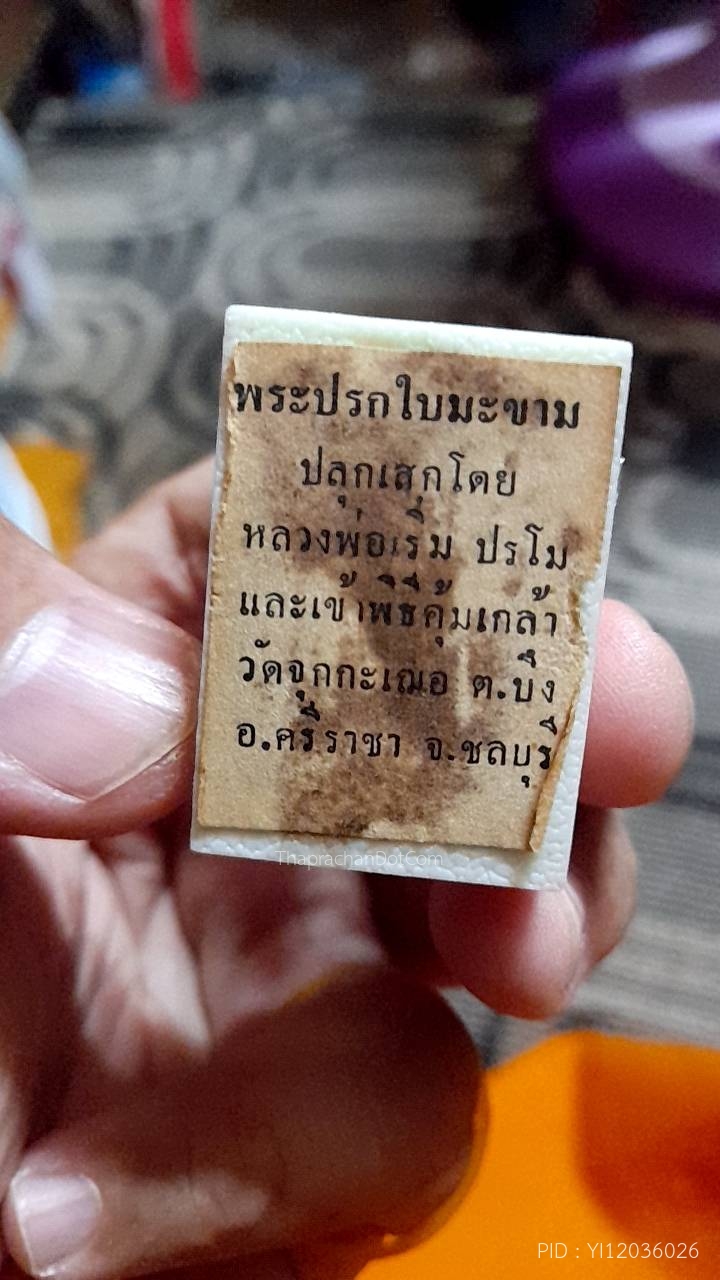 พระปรกใบมะขาม
ปลุกเสกโดย
หลวงพ่อเริ่ม ปรโม
และเข้าพิธีคุ้มเกล้า
วัดจุกกะเฌอ ต.บึง
อ.ศรีราชา จ.ชลบุรี
ThaprachanDotCom
PID : YI12036026